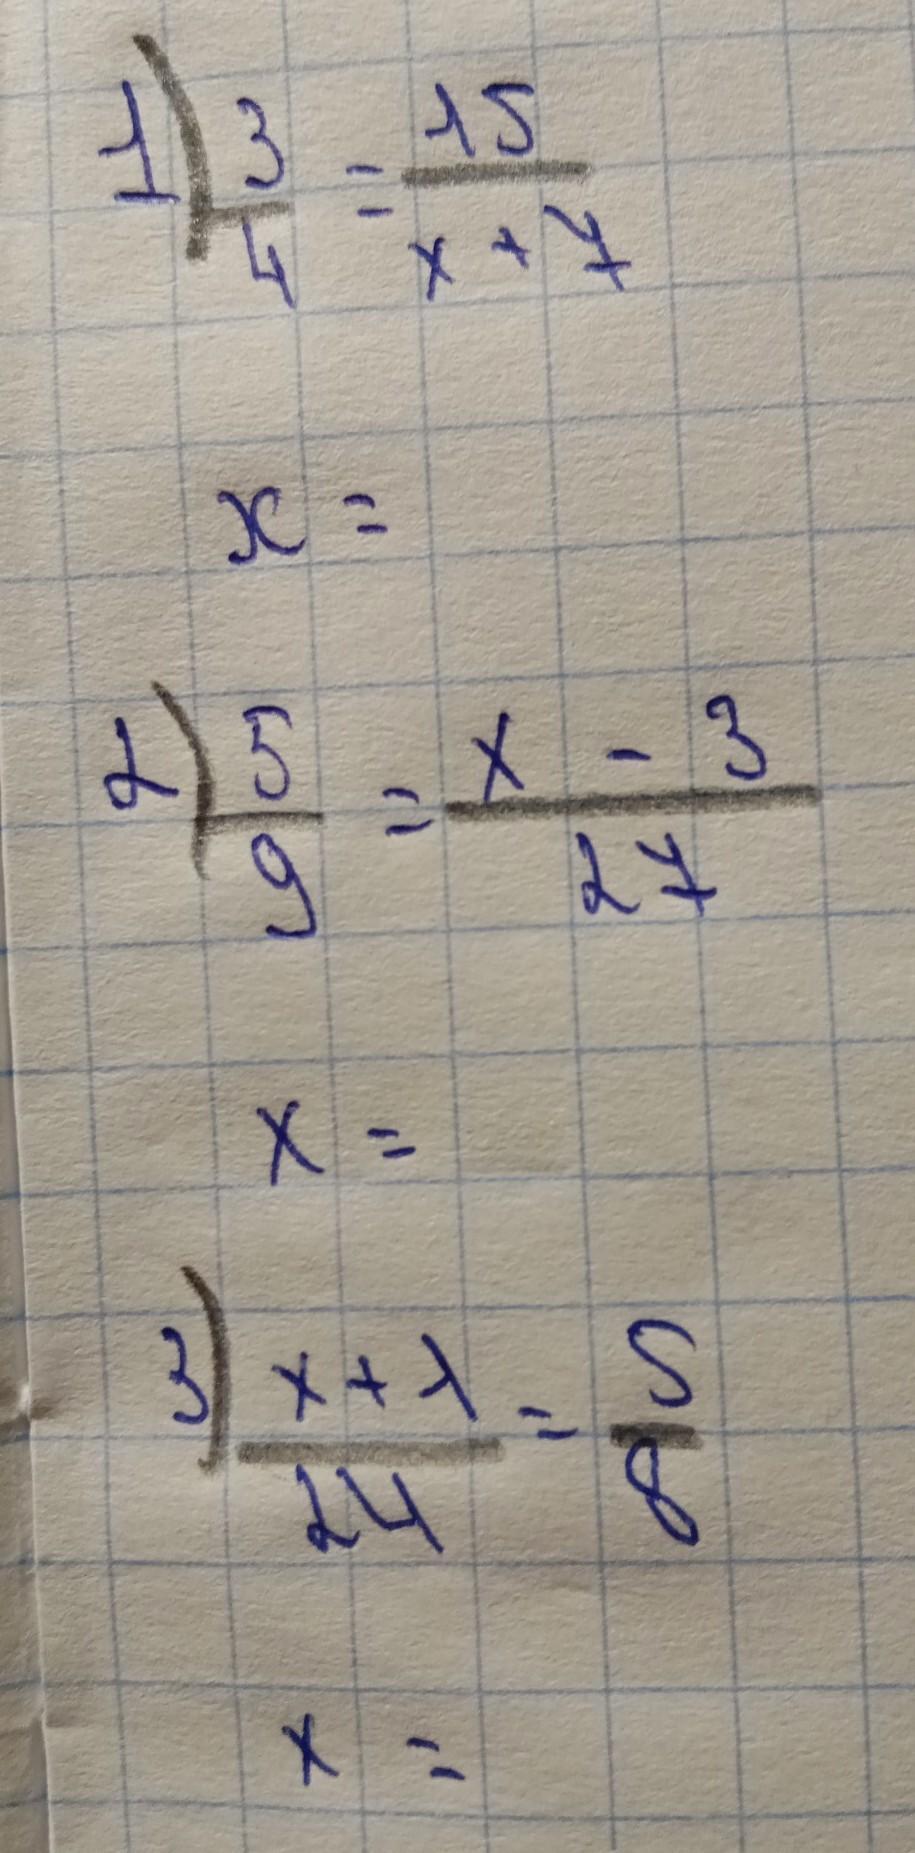 1) 3/4 = 15/(x + 7)
x =
2) 5/9 = (x - 3)/27
x =
3) (x + 1)/24 = 5/8
x =